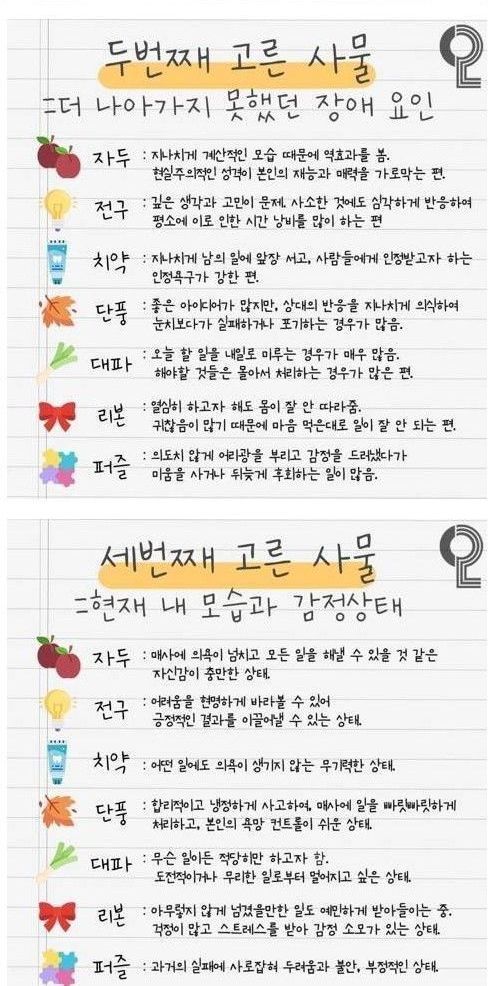 두번째 고른 사물
=더 나아가지 못했던 장애 요인
자두 : 지나치게 계산적인 모습 때문에 역효과를 봄.
현실주의적인 성격이 본인의 재능과 매력을 가로막는 편.
전구 : 깊은 생각과 고민이 문제. 사소한 것에도 심각하게 반응하여
평소에 이로 인한 시간 낭비를 많이 하는 편
치약 : 지나치게 남의 일에 앞장 서고, 사람들에게 인정받고자 하는
인정욕구가 강한 편.
단풍 : 좋은 아이디어가 많지만, 상대의 반응을 지나치게 의식하여
눈치보다가 실패하거나 포기하는 경우가 많음.
대파 : 오늘 할 일을 내일로 미루는 경우가 매우 많음.
해야할 것들은 몰아서 처리하는 경우가 많은 편.
리본 : 열심히 하고자 해도 몸이 잘 안 따라줌.
귀찮음이 많기 때문에 마음 먹은대로 일이 잘 안 되는 편.
퍼즐 : 의도치 않게 어리광을 부리고 감정을 드러냈다가
미움을 사거나 뒤늦게 후회하는 일이 많음.
세번째 고른 사물
=현재 내 모습과 감정상태
자두 : 매사에 의욕이 넘치고 모든 일을 해낼 수 있을 것 같은
자신감이 충만한 상태.
전구 : 어려움을 현명하게 바라볼 수 있어
긍정적인 결과를 이끌어낼 수 있는 상태.
치약 : 어떤 일에도 의욕이 생기지 않는 무기력한 상태.
단풍 : 합리적이고 냉정하게 사고하여, 매사에 일을 빠릿빠릿하게
처리하고, 본인의 욕망 컨트롤이 쉬운 상태.
대파 : 무슨 일이든 적당히만 하고자 함.
도전적이거나 무리한 일로부터 멀어지고 싶은 상태.
리본 : 아무렇지 않게 넘겼을만한 일도 예민하게 받아들이는 중.
걱정이 많고 스트레스를 받아 감정 소모가 있는 상태.
퍼즐 : 과거의 실패에 사로잡혀 두려움과 불안, 부정적인 상태.